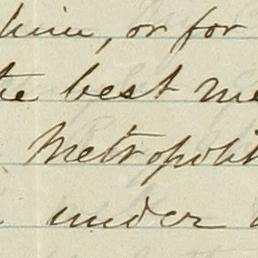 him, or for
the best me
Metropolit
under